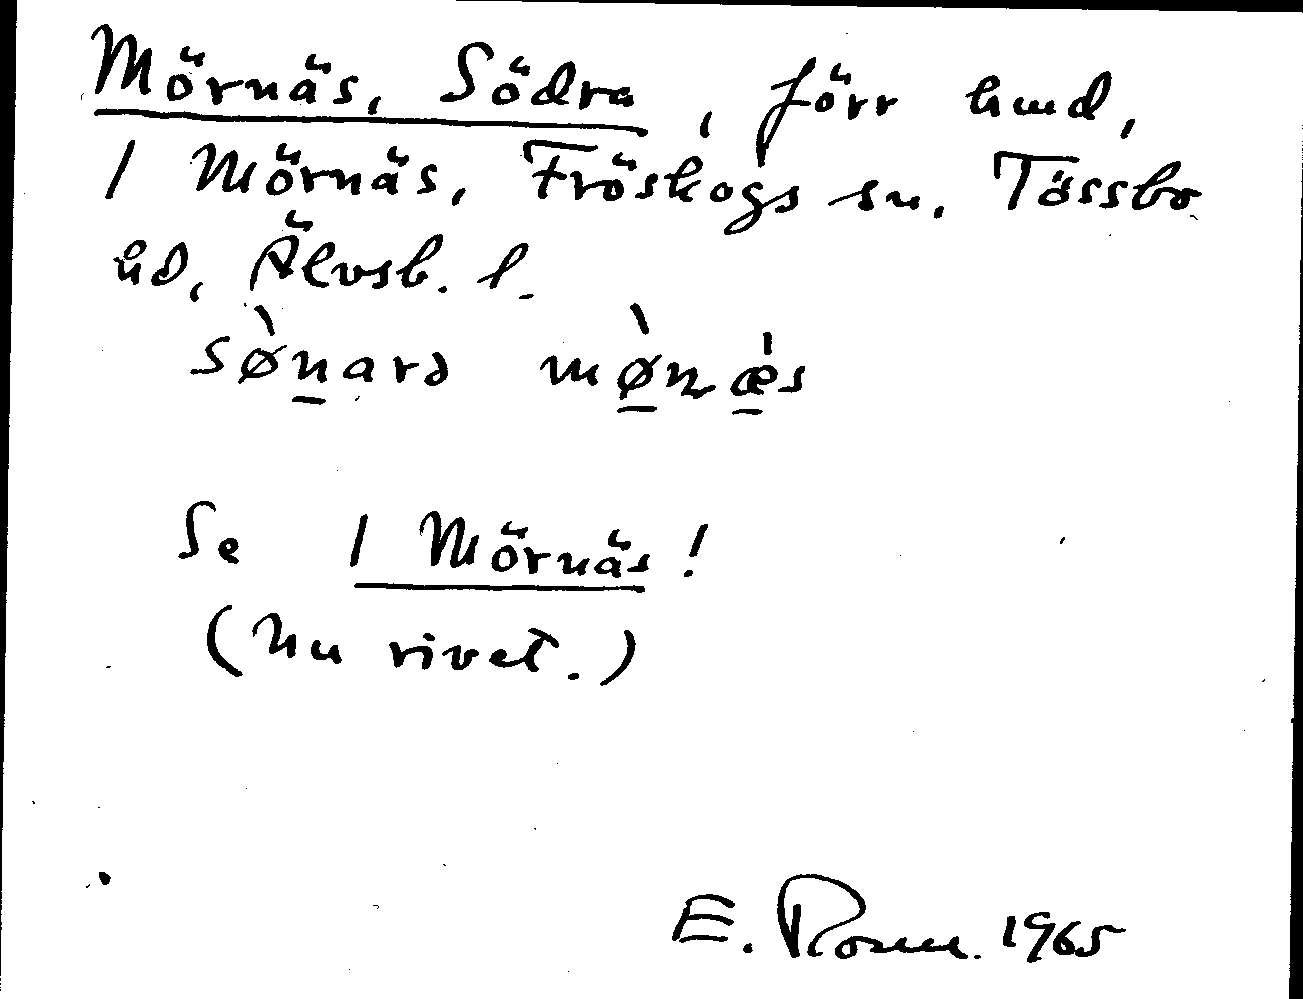 Mörnäs, Södra, förr hmd,
1 Mörnäs, Fröskogs sn. Tössbo
hd, Älvsb. l.
sø̀n̲arə mø̲̀næ̲̍s
Se 1 Mörnäs!
(Nu rivet.)
E. Rosén. 1965